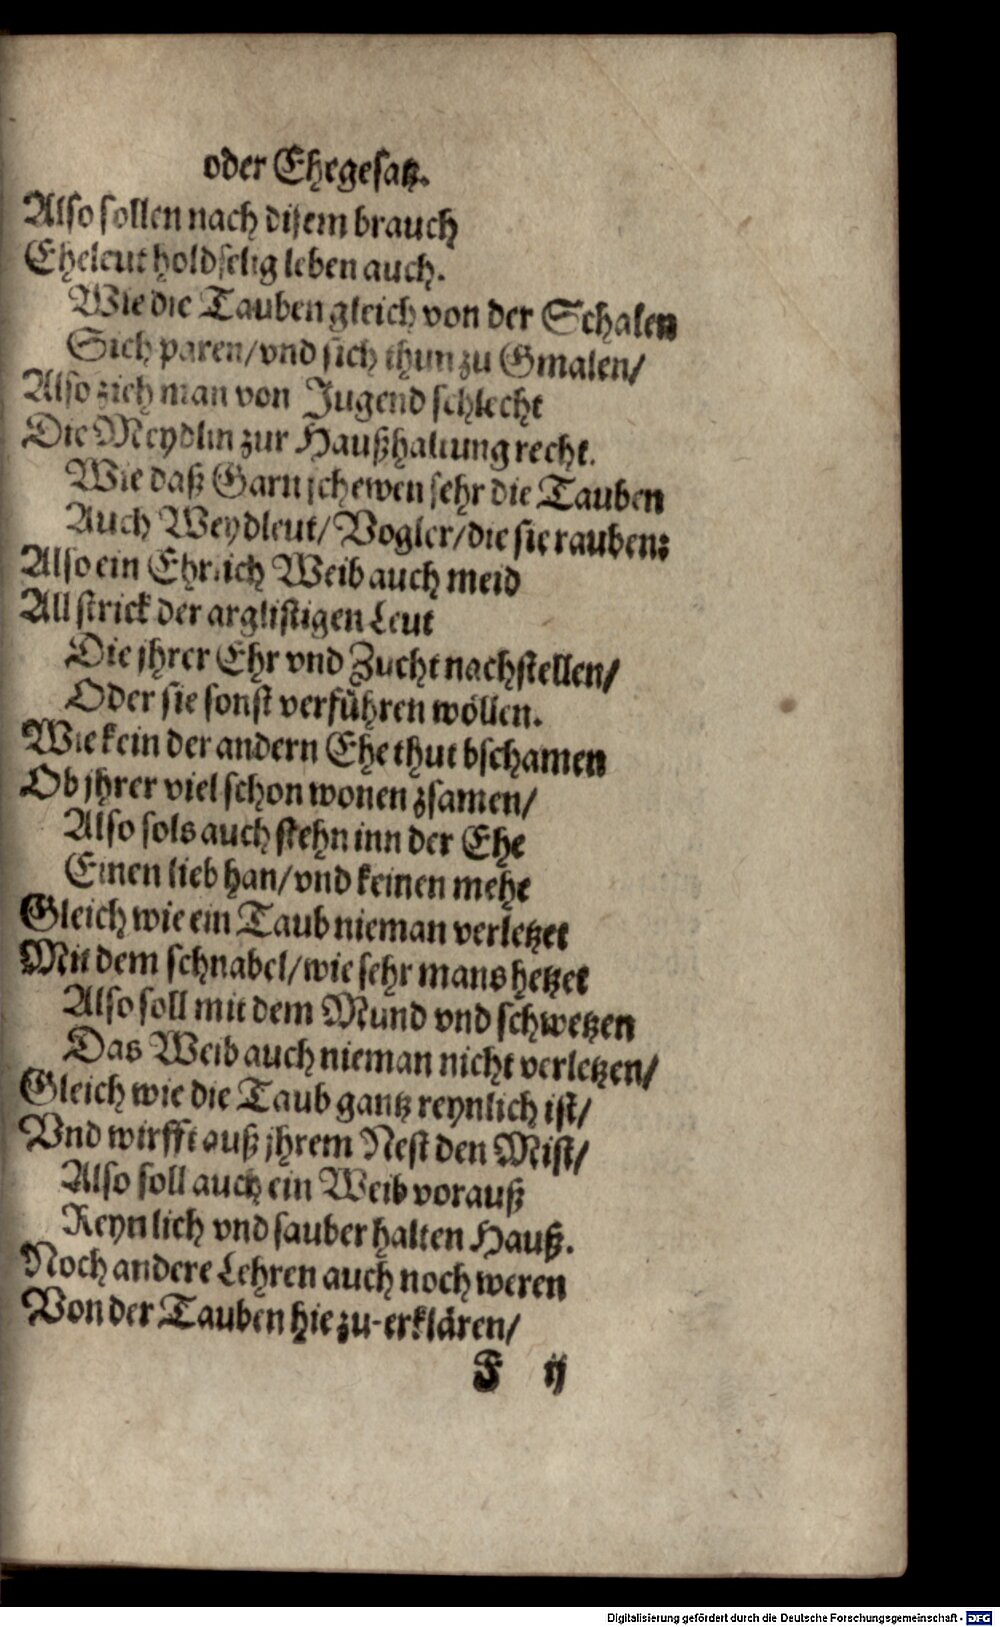 oder Ehegesatz.
Also sollen nach disem brauch
Eheleut holdselig leben auch.
Wie die Tauben gleich von der Schalen
Sich paren/vnd sich thun zu Gmalen/
Also zieh man von Jugend schlecht
Die Meydlin zur Haußhaltung recht.
Wie daß Garn schewen sehr die Tauben
Auch Weydleut/Vogler/die sie rauben:
Also ein Ehrlich Weib auch meid
All strick der arglistigen Leut
Die jhrer Ehr vnd Zucht nachstellen/
Oder sie sonst verführen wöllen.
Wie kein der andern Ehe thut bschamen
Ob jhrer viel schon wonen zsamen/
Also sols auch stehn inn der Ehe
Einen lieb han/vnd keinen mehe
Gleich wie ein Taub nieman verletzet
Mit dem schnabel/wie sehr mans hetzet
Also soll mit dem Mund vnd schwetzen
Das Weib auch nieman nicht verletzen/
Gleich wie die Taub gantz reynlich ist/
Vnd wirfft auß jhrem Nest den Mist/
Also soll auch ein Weib vorauß
Reynlich vnd sauber halten Hauß.
Noch andere Lehren auch noch weren
Von der Tauben hie zu-erklären/
F ij
Digitalisierung gefördert durch die Deutsche Forschungsgemeinschaft - DFG